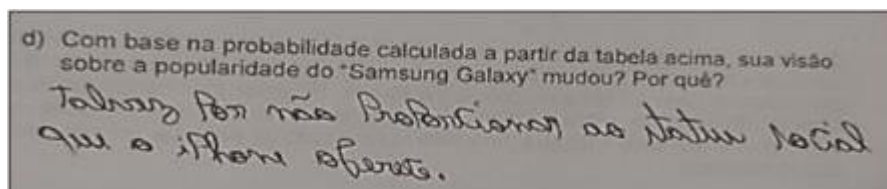 d) Com base na probabilidade calculada a partir da tabela acima, sua visão
sobre a popularidade do "Samsung Galaxy" mudou? Por quê?
Talvez Por não Proporcionar ao status social
que o iPhone oferece.